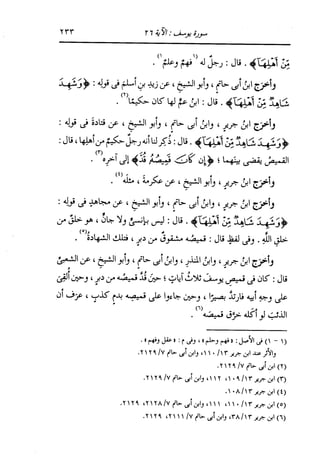 سورة يوسف : الآية ٢٦
٢٣٣
مِّنْ أَهْلِهَآ﴾ . قال : رجلٌ له (١فهمٌ وعلمٌ١) .
وأخرَج ابنُ أبى حاتمٍ ، وأبو الشيخِ ، عن زيدِ بنِ أسلمَ فى قولِه : ﴿وَشَهِدَ
شَاهِدٌ مِّنْ أَهْلِهَآ﴾ . قال : ابنُ عمٍّ لها كان حكيمًا(٢) .
وأخرَج ابنُ جريرٍ ، وابنُ أبى حاتمٍ ، وأبو الشيخِ ، عن قتادةَ فى قولِه :
﴿وَشَهِدَ شَاهِدٌ مِّنْ أَهْلِهَآ﴾ . قال : ذُكِر لنا أنه رجلٌ حكيمٌ من أهلِها ، قال :
القميصُ يَقضى بينَهما ؛ ﴿إِن كَانَ قَمِيصُهُ قُدَّ﴾ إلى آخرِه(٣) .
وأخرَج ابنُ جريرٍ ، وأبو الشيخِ ، عن عكرمةَ ، مثلَه(٤) .
وأخرَج ابنُ جريرٍ ، وابنُ أبى حاتمٍ ، وأبو الشيخِ ، عن مجاهدٍ فى قولِه :
﴿وَشَهِدَ شَاهِدٌ مِّنْ أَهْلِهَآ﴾ . قال : ليس بإنسىٍّ ولا جانٍّ ، هو خلقٌ من
خلقِ اللهِ . وفى لفظٍ قال : قميصُه مشقوقٌ من دبرٍ ، فتلك الشهادةُ(٥) .
وأخرَج ابنُ جريرٍ ، وابنُ المنذرِ ، وابنُ أبى حاتمٍ ، وأبو الشيخِ ، عن الشعبىِّ
قال : كان فى قميصِ يوسفَ ثلاثُ آياتٍ ؛ حينَ قُدَّ قميصُه من دبرٍ ، وحينَ أُلقِىَ
على وجهِ أبيه فارتدَّ بصيرًا ، وحينَ جاءوا على قميصِه بدمٍ كذبٍ ، عرَف أن
الذئبَ لو أكله خرَق قميصَه(٦) .
(١ - ١) فى الأصل : « فهم وحلم » ، وفى م : « عقل وفهم » .
والأثر عند ابن جرير ١٣/ ١١٠، وابن أبى حاتم ٧/ ٢١٢٩.
(٢) ابن أبى حاتم ٧/ ٢١٢٩.
(٣) ابن جرير ١٣/ ١٠٩، ١١٢، وابن أبى حاتم ٧/ ٢١٢٩.
(٤) ابن جرير ١٣/ ١٠٨.
(٥) ابن جرير ١٣/ ١١٠، ١١١، وابن أبى حاتم ٧/ ٢١٢٨، ٢١٢٩.
(٦) ابن جرير ١٣/ ٣٨، وابن أبى حاتم ٧/ ٢١١١، ٢١٢٩.